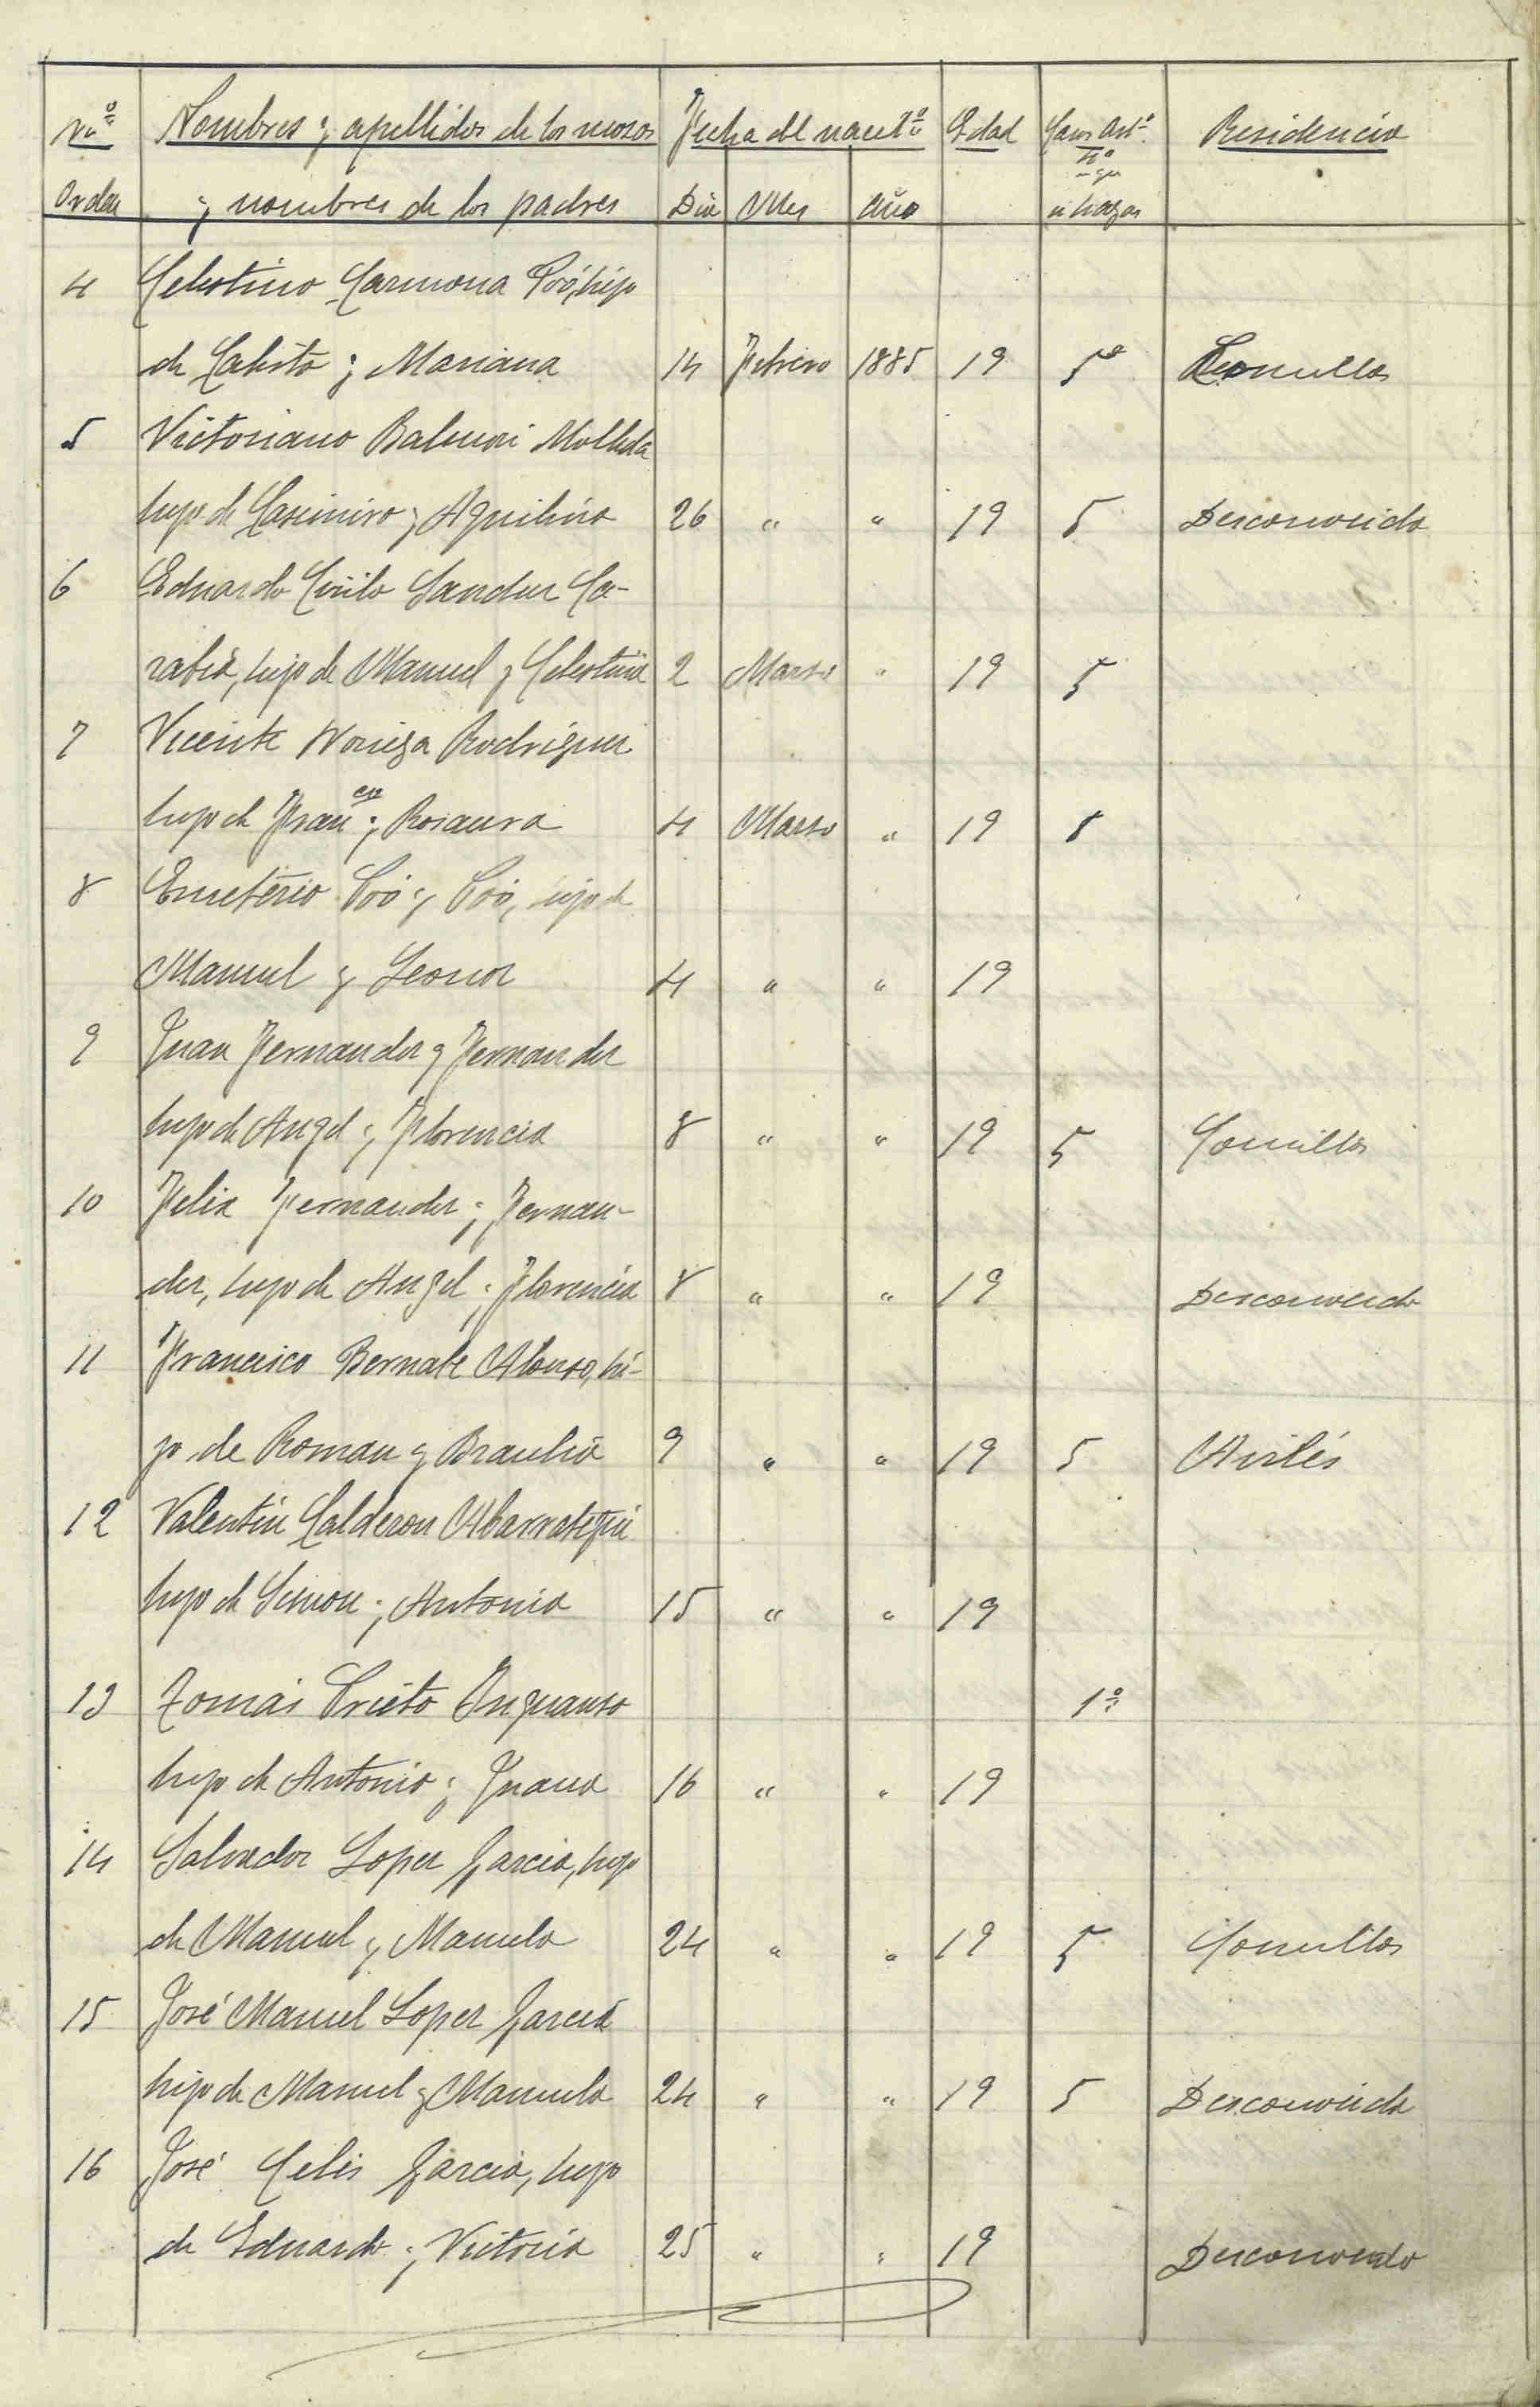 Nº Nombres y apellidos de los mozos Fecha del nacetº Edad Caso artº Residencia
Orden y nombres de los padres Dia Mes Año
4 Celestino Carmona Poó, hijo
de Calisto y Mariana 14 Febrero 1885 19 5º Comillas
5 Victoriano Balmori Molleda
hijo de Casimiro y Aquilina 26 " " 19 5 Desconocida
6 Eduardo Cirilo Sanchez Ca-
rabia, hijo de Manuel y Celestina 2 Marzo " 19 5
7 Vicente Noriega Rodriguez
hijo de Franco y Rosaura 4 Marzo " 19 5
8 Emeterio Poó y Poó, hijo de
Manuel y Leonor 4 " " 19
9 Juan Fernandez y Fernandez
hijo de Angel y Florencia 8 " " 19 5 Comillas
10 Felix Fernandez y Fernan-
dez, hijo de Angel y Florencia 8 " " 19 Desconocido
11 Francisco Bernabe Alonso, hi-
jo de Roman y Braulia 9 " " 19 5 Avilés
12 Valentin Calderon Abarrategui
hijo de Simon y Antonia 15 " " 19
13 Tomás Prieto Inguanzo 1º
hijo de Antonio y Juana 16 " " 19
14 Salvador Lopez Garcia, hijo
de Manuel y Manuela 24 " " 19 5 Comillas
15 José Manuel Lopez Garcia
hijo de Manuel y Manuela 24 " " 19 5 Desconocida
16 José Celis Garcia, hijo
de Eduardo y Victoria 25 " " 19 Desconocido